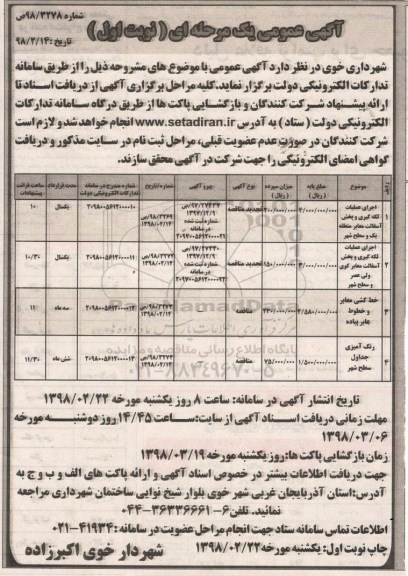 شماره ۹۸/۳۲۷۸ص
آگهی عمومی یک مرحله ای ( نوبت اول )
تاریخ: ۹۸/۲/۱۴
شهرداری خوی در نظر دارد آگهی عمومی با موضوع های مشروحه ذیل را از طریق سامانه
تدارکات الکترونیکی دولت برگزار نماید. کلیه مراحل برگزاری آگهی از دریافت اسناد تا
ارائه پیشنهاد شرکت کنندگان و بازگشایی پاکت ها از طریق درگاه سامانه تدارکات
الکترونیکی دولت ( ستاد ) به آدرس www.setadiran.ir انجام خواهد شد و لازم است
شرکت کنندگان در صورت عدم عضویت قبلی، مراحل ثبت نام در سایت مذکور و دریافت
گواهی امضای الکترونیکی را جهت شرکت در آگهی محقق سازند.
ردیف موضوع مبلغ پایه (ریال) میزان سپرده (ریال) نوع آگهی شماره/تاریخ شماره مندرج در سامانه تدارکات الکترونیکی دولت مدت قرارداد ساعت قرائت پیشنهادات
۱ اجرای عملیات لکه گیری و پخش آسفالت معابر منطقه یک و سطح شهر تجدید مناقصه ۲۰۹۸۰۰۵۶۱۲۰۰۰۰۱۰ یکسال ۱۰
۲ اجرای عملیات لکه گیری و پخش آسفالت معابر کوی ولی عصر و سطح شهر تجدید مناقصه ۲۰۹۸۰۰۵۶۱۲۰۰۰۰۱۱ یکسال ۱۰/۳۰
۳ خط کشی معابر و خطوط عابر پیاده مناقصه ۲۰۹۸۰۰۵۶۱۲۰۰۰۰۱۲ سه ماه ۱۱
۴ رنگ آمیزی جداول سطح شهر ۱/۵۰۰/۰۰۰/۰۰۰ ۷۵/۰۰۰/۰۰۰ مناقصه شش ماه ۱۱/۳۰
پایگاه اطلاع رسانی مناقصه و مزایده
۰۲۱-۸۸۳۴۹۶۷۰-۵
تاریخ انتشار آگهی در سامانه: ساعت ۸ روز یکشنبه مورخه ۱۳۹۸/۰۲/۲۲
مهلت زمانی دریافت اسناد آگهی از سایت: ساعت ۱۴/۴۵ روز دوشنبه مورخه
۱۳۹۸/۰۳/۰۶
زمان بازگشایی پاکت ها: روز یکشنبه مورخه ۱۳۹۸/۰۳/۱۹
جهت دریافت اطلاعات بیشتر در خصوص اسناد آگهی و ارائه پاکت های الف و ب و ج به
آدرس: استان آذربایجان غربی شهر خوی بلوار شیخ نوایی ساختمان شهرداری مراجعه
نمائید. تلفن ۶-۳۶۳۳۶۶۶۱-۰۴۴
اطلاعات تماس سامانه ستاد جهت انجام مراحل عضویت در سامانه : ۴۱۹۳۴-۰۲۱
چاپ نوبت اول: یکشنبه مورخه ۱۳۹۸/۰۲/۲۲
شهردار خوی اکبرزاده